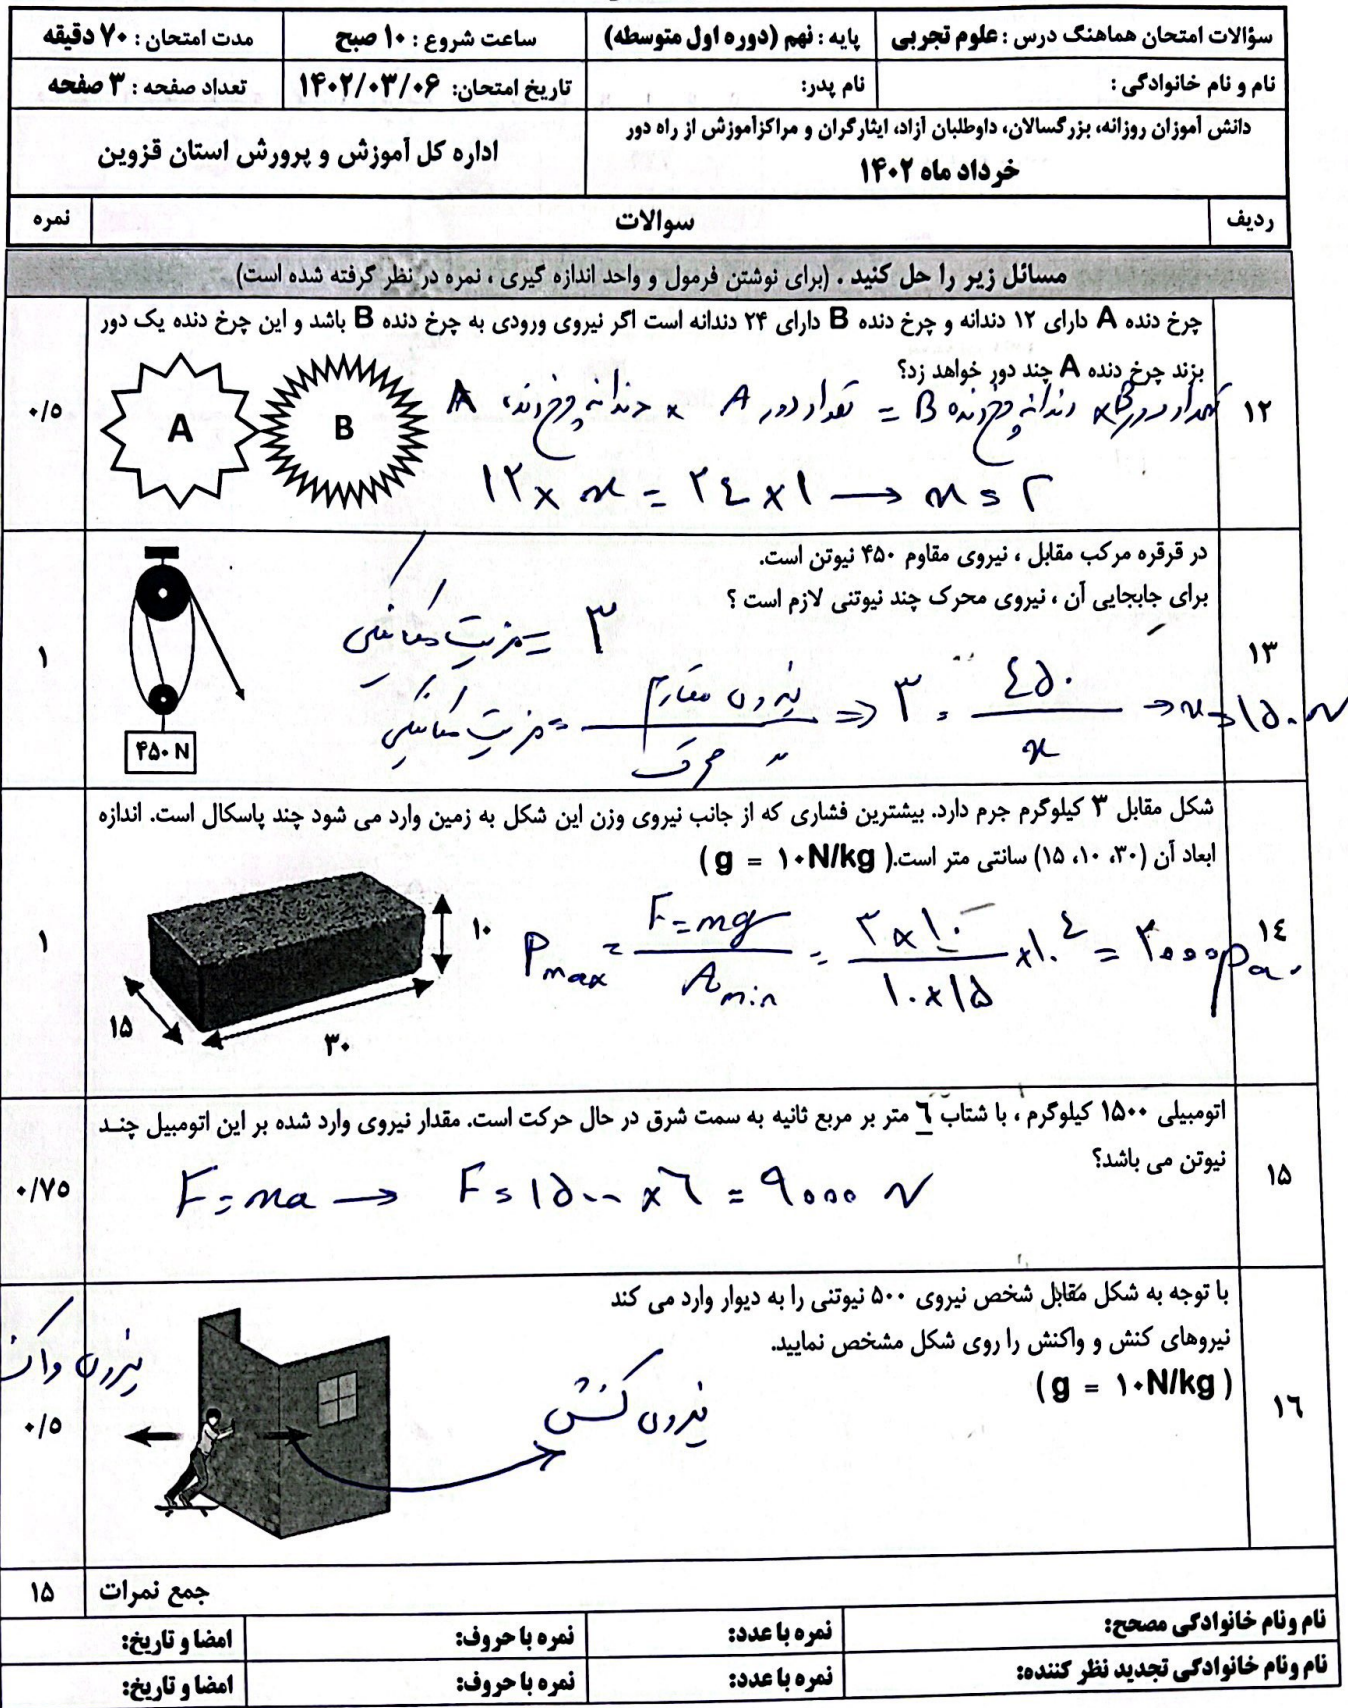 سؤالات امتحان هماهنگ درس : علوم تجربی	پایه : نهم (دوره اول متوسطه)	ساعت شروع : ۱۰ صبح	مدت امتحان : ۷۰ دقیقه
نام و نام خانوادگی :	نام پدر:	تاریخ امتحان: ۱۴۰۲/۰۳/۰۶	تعداد صفحه : ۳ صفحه
دانش آموزان روزانه، بزرگسالان، داوطلبان آزاد، ایثارگران و مراکزآموزش از راه دور
خرداد ماه ۱۴۰۲
اداره کل آموزش و پرورش استان قزوین
ردیف	سوالات	نمره
مسائل زیر را حل کنید . (برای نوشتن فرمول و واحد اندازه گیری ، نمره در نظر گرفته شده است)
۱۲
چرخ دنده A دارای ۱۲ دندانه و چرخ دنده B دارای ۲۴ دندانه است اگر نیروی ورودی به چرخ دنده B باشد و این چرخ دنده یک دور
بزند چرخ دنده A چند دور خواهد زد؟
تعداد دور B × دندانه چرخ دنده B = تعداد دور A × دندانه چرخ دنده A
۱۲ × x = ۲٤ × ۱ → x = ۲
A
B
۰/۵
۱۳
در قرقره مرکب مقابل ، نیروی مقاوم ۴۵۰ نیوتن است.
برای جابجایی آن ، نیروی محرک چند نیوتنی لازم است ؟
مزیت مکانیکی = ۳
مزیت مکانیکی = نیروی مقاوم / 〃 محرک ⇒ ۳ = ٤۵۰ / x → x = ۱۵۰ N
۴۵۰ N
۱
۱٤
شکل مقابل ۳ کیلوگرم جرم دارد. بیشترین فشاری که از جانب نیروی وزن این شکل به زمین وارد می شود چند پاسکال است. اندازه
ابعاد آن (۳۰، ۱۰، ۱۵) سانتی متر است.( g = ۱۰N/kg )
P max = F = mg / A min = ۳ × ۱۰ / ۱۰ × ۱۵ × ۱۰ ٤ = ۲۰۰۰ pa
۱۰
۱۵
۳۰
۱
۱۵
اتومبیلی ۱۵۰۰ کیلوگرم ، با شتاب ٦ متر بر مربع ثانیه به سمت شرق در حال حرکت است. مقدار نیروی وارد شده بر این اتومبیل چنـد
نیوتن می باشد؟
F = ma → F = ۱۵۰۰ × ٦ = ۹۰۰۰ N
۰/۷۵
۱٦
با توجه به شکل مقابل شخص نیروی ۵۰۰ نیوتنی را به دیوار وارد می کند
نیروهای کنش و واکنش را روی شکل مشخص نمایید.
( g = ۱۰N/kg )
نیروی کنش
نیروی
۰/۵
جمع نمرات	۱۵
نام ونام خانوادگی مصحح:	نمره با عدد:	نمره با حروف:	امضا و تاریخ:
نام ونام خانوادگی تجدید نظر کننده:	نمره با عدد:	نمره با حروف:	امضا و تاریخ: